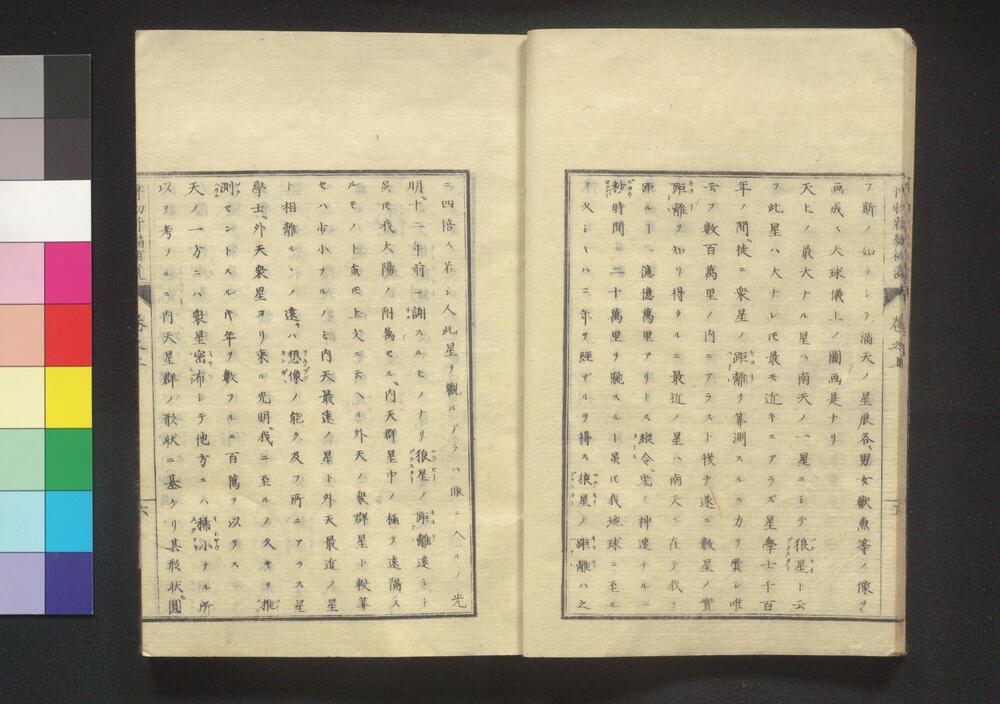 フ斯ノ如クシテ満天ノ星辰各男女獣魚等ノ像ヲ
画成ス天球儀上ノ圖画是ナリ
天上ノ最大ナル星ハ南天ノ一星ニシテ狼星ト云
フ此星ハ大ナレ𪜈最モ近キニアラズ星學士千百
年ノ間徒ニ衆星ノ距離ヲ算測スルニ力ヲ費シ唯
云フ數百萬里ノ内ニアラスト後チ遂ニ數星ノ實
距離ヲ知リ得タルニ最近ノ星ハ南天ニ在テ我ヲ
距ルヿ二億億萬里アリトス縱令光ノ神速ナル一
秒時間ニ二十萬里ヲ馳スルト雖𪜈我地球ニ至ル
ノ久シキハ三年ヲ經ザルヲ得ス狼星ノ距離ハ之
ニ四倍ス若シ人此星ヲ觀ルアラハ眼ニ入ルノ光
明十二年前ニ謝スルモノナリ狼星ノ距離遠シト
雖𪜈我大陽ノ附属セル内天群星中ノ極テ遠隔ス
ルモノト雖𪜈上文ニ云ヘル外天ノ衆群星ト較算
セハ少小ナルノミ内天最遠ノ星ト外天最近ノ星
ト相離ルヽノ遠キハ想像ノ能ク及フ所ニアラス星
學士外天衆星ヨリ来ル光明我ニ至ルノ久キヲ推
測セントスル𪜈年ヲ數フルニ百萬ヲ以ラス
天ノ一方ニハ衆星密布シテ他方ニハ稀小ナル所
以ヲ考フルニ内天星群ノ形状ニ基ケリ其形状圓
六